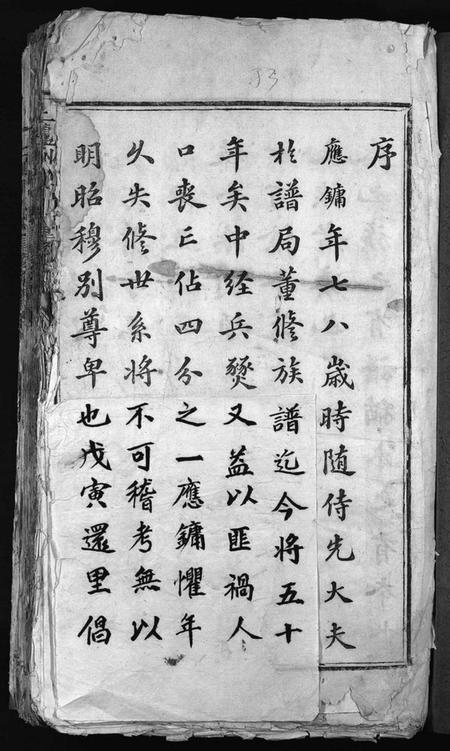 序
應鏞年七八歲時随侍先大夫
於譜局董修族譜迄今將五十
年矣中经兵燹又益以匪禍人
口喪亡佔四分之一應鏞懼年
久失修世系將不可稽考無以
明昭穆別尊卑也戊寅還里倡
53